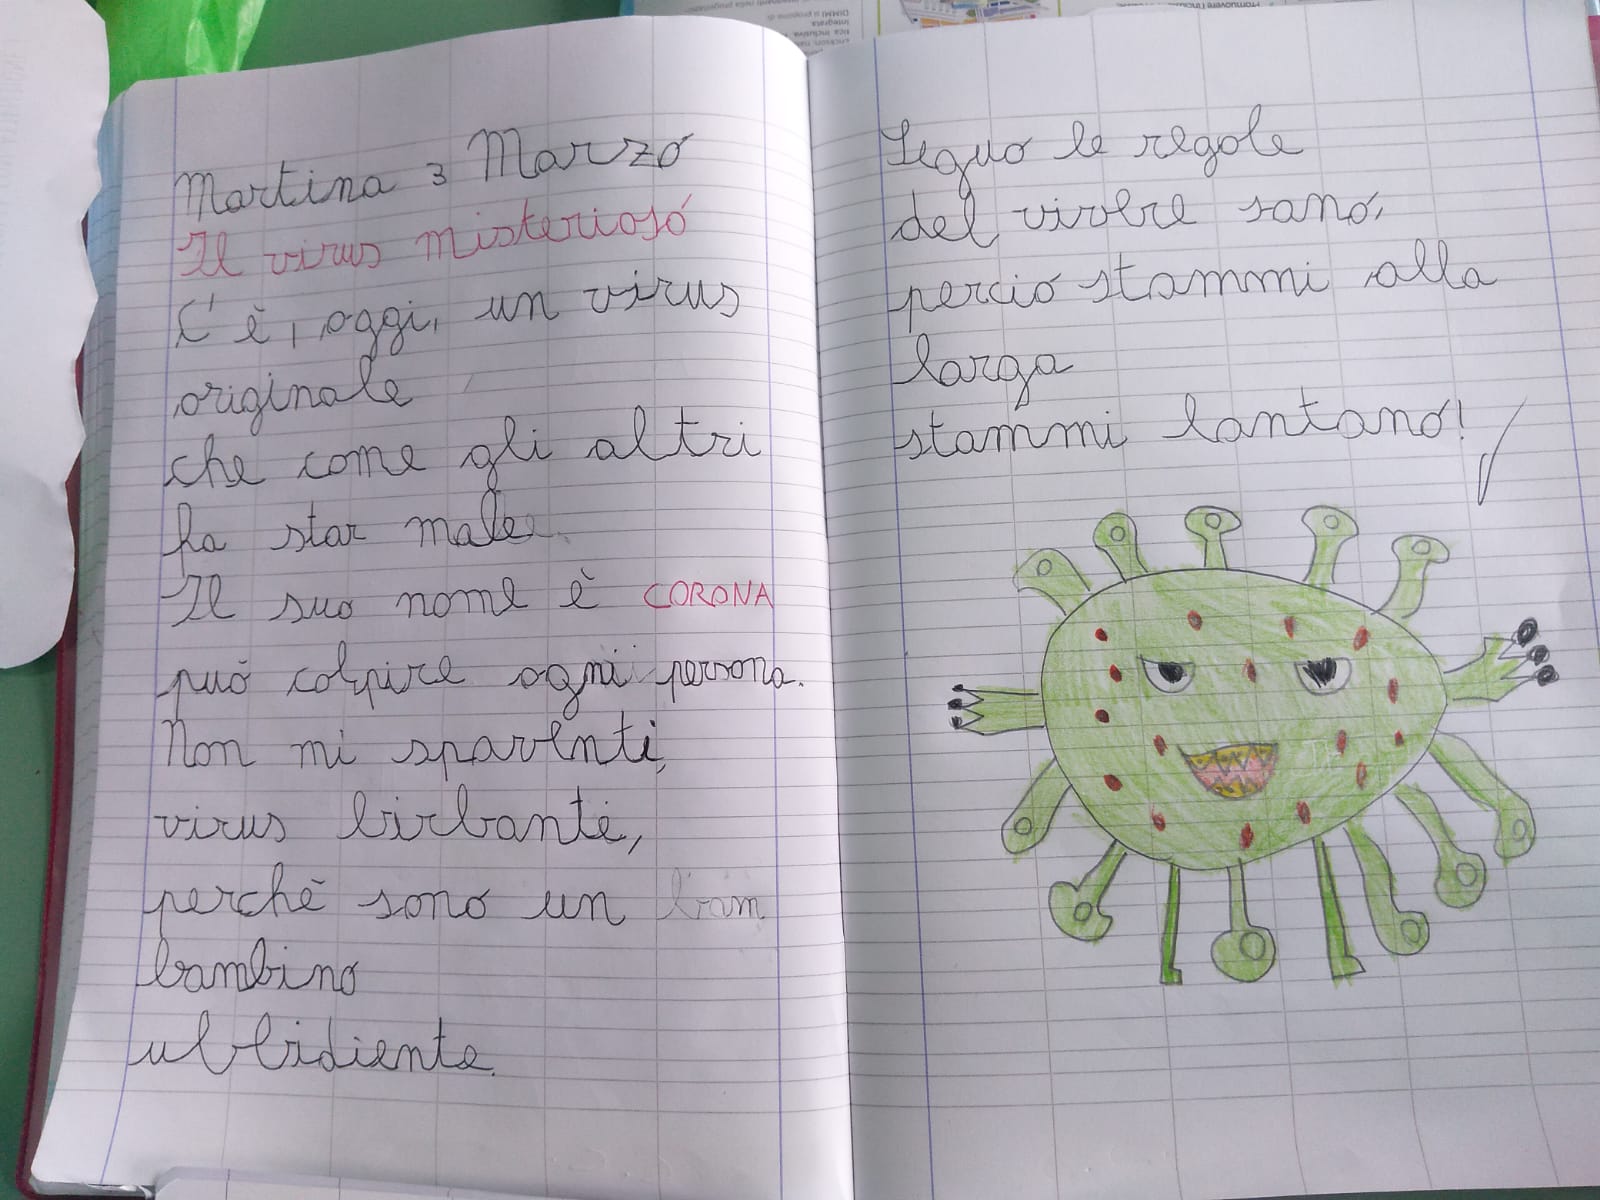 Martina 3 Marzo
Il virus misterioso
C'è, oggi, un virus
originale
che come gli altri
fa star male.
Il suo nome è CORONA
può colpire ogni persona.
Non mi spaventi,
virus birbante,
perchè sono un bam
bambino
ubbidiente.
Seguo le regole
del vivere sano,
perciò stammi alla
larga
stammi lontano!